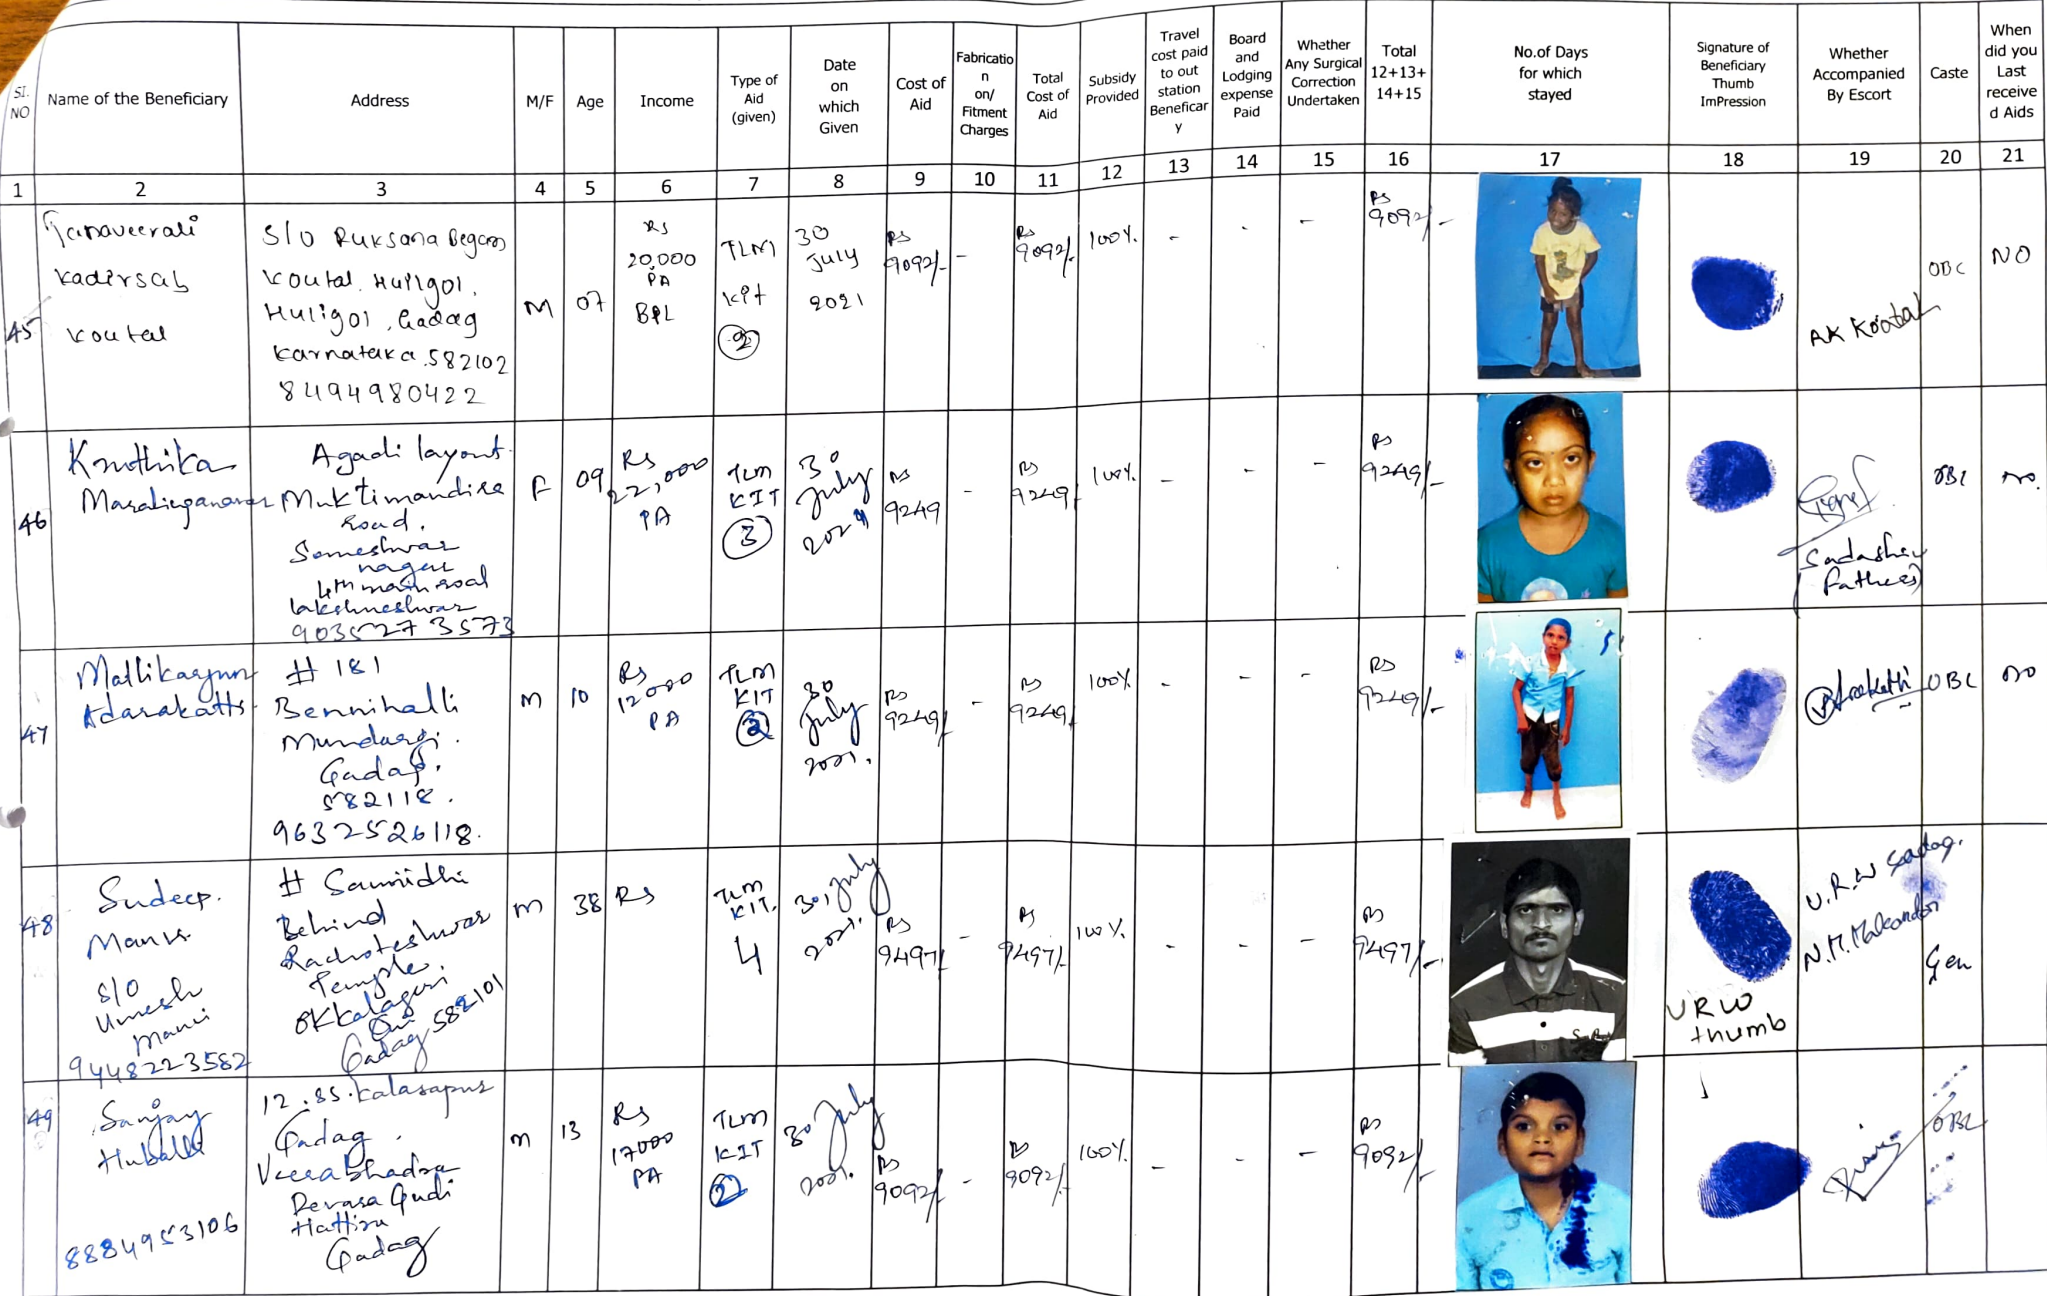 SI. NO
Name of the Beneficiary
Address
M/F
Age
Income
Type of Aid (given)
Date on which Given
Cost of Aid
Fabricatio n on/ Fitment Charges
Total Cost of Aid
Subsidy Provided
Travel cost paid to out station Beneficar y
Board and Lodging expense Paid
Whether Any Surgical Correction Undertaken
Total 12+13+ 14+15
No.of Days for which stayed
Signature of Beneficiary Thumb ImPression
Whether Accompanied By Escort
Caste
When did you Last receive d Aids
1 2 3 4 5 6 7 8 9 10 11 12 13 14 15 16 17 18 19 20 21
45
Kadirsab
Koutal
S/O Ruksana Begam
Koutal. Huilgol.
Huligol, Gadag
Karnataka.582102
8494980422
M
07
Rs
20,000
PA
BPL
TLM
Kit
2
30
July
2021
Rs
9092/-
-
Rs
9092/-
100%
-
-
-
Rs
9092/-
AK Koutal
OBC
NO
46
Kruthika
Agadi layout
Muktimandira
road.
Someshwar
nagar
4th main road
lakshmeshwar
9035273573
F
09
Rs
22,000
PA
TLM
KIT
3
30
July
Rs
9249
-
Rs
9249/-
100%
-
-
-
Rs
9249/-
Sadashiv
(father)
OBC
no.
47
Mallikarjun
Adarakatti
# 181
Bennihalli
Mundargi.
Gadag.
582118.
9632526118.
m
10
Rs
12000
PA
TLM
KIT
2
30
July
2021.
Rs
9249/-
-
Rs
9249/-
100%
-
-
-
Rs
9249/-
OBC
no
48
Sudeep.
Manvi.
S/O
Umesh
Manvi
9448223582
# Sannidhi
Behind
Rachoteshwar
Temple.
Okkalageri
Oni
Gadag 582101
m
38
Rs
TLM
KIT.
4
30, July
2021.
Rs
9497/-
-
Rs
9497/-
100%
-
-
-
Rs
9497/-
URW
thumb
U.R.W Gadag.
Gen
49
Sanjay
Huballi
8884953106
12.85.Kalasapur
Gadag.
Veerabhadra
Devara Gudi
Hattira
Gadag
m
13
Rs
17000
PA
TLM
KIT
2
30 July
2021.
Rs
9092/-
-
Rs
9092/-
100%
-
-
-
Rs
9092/-
OBC